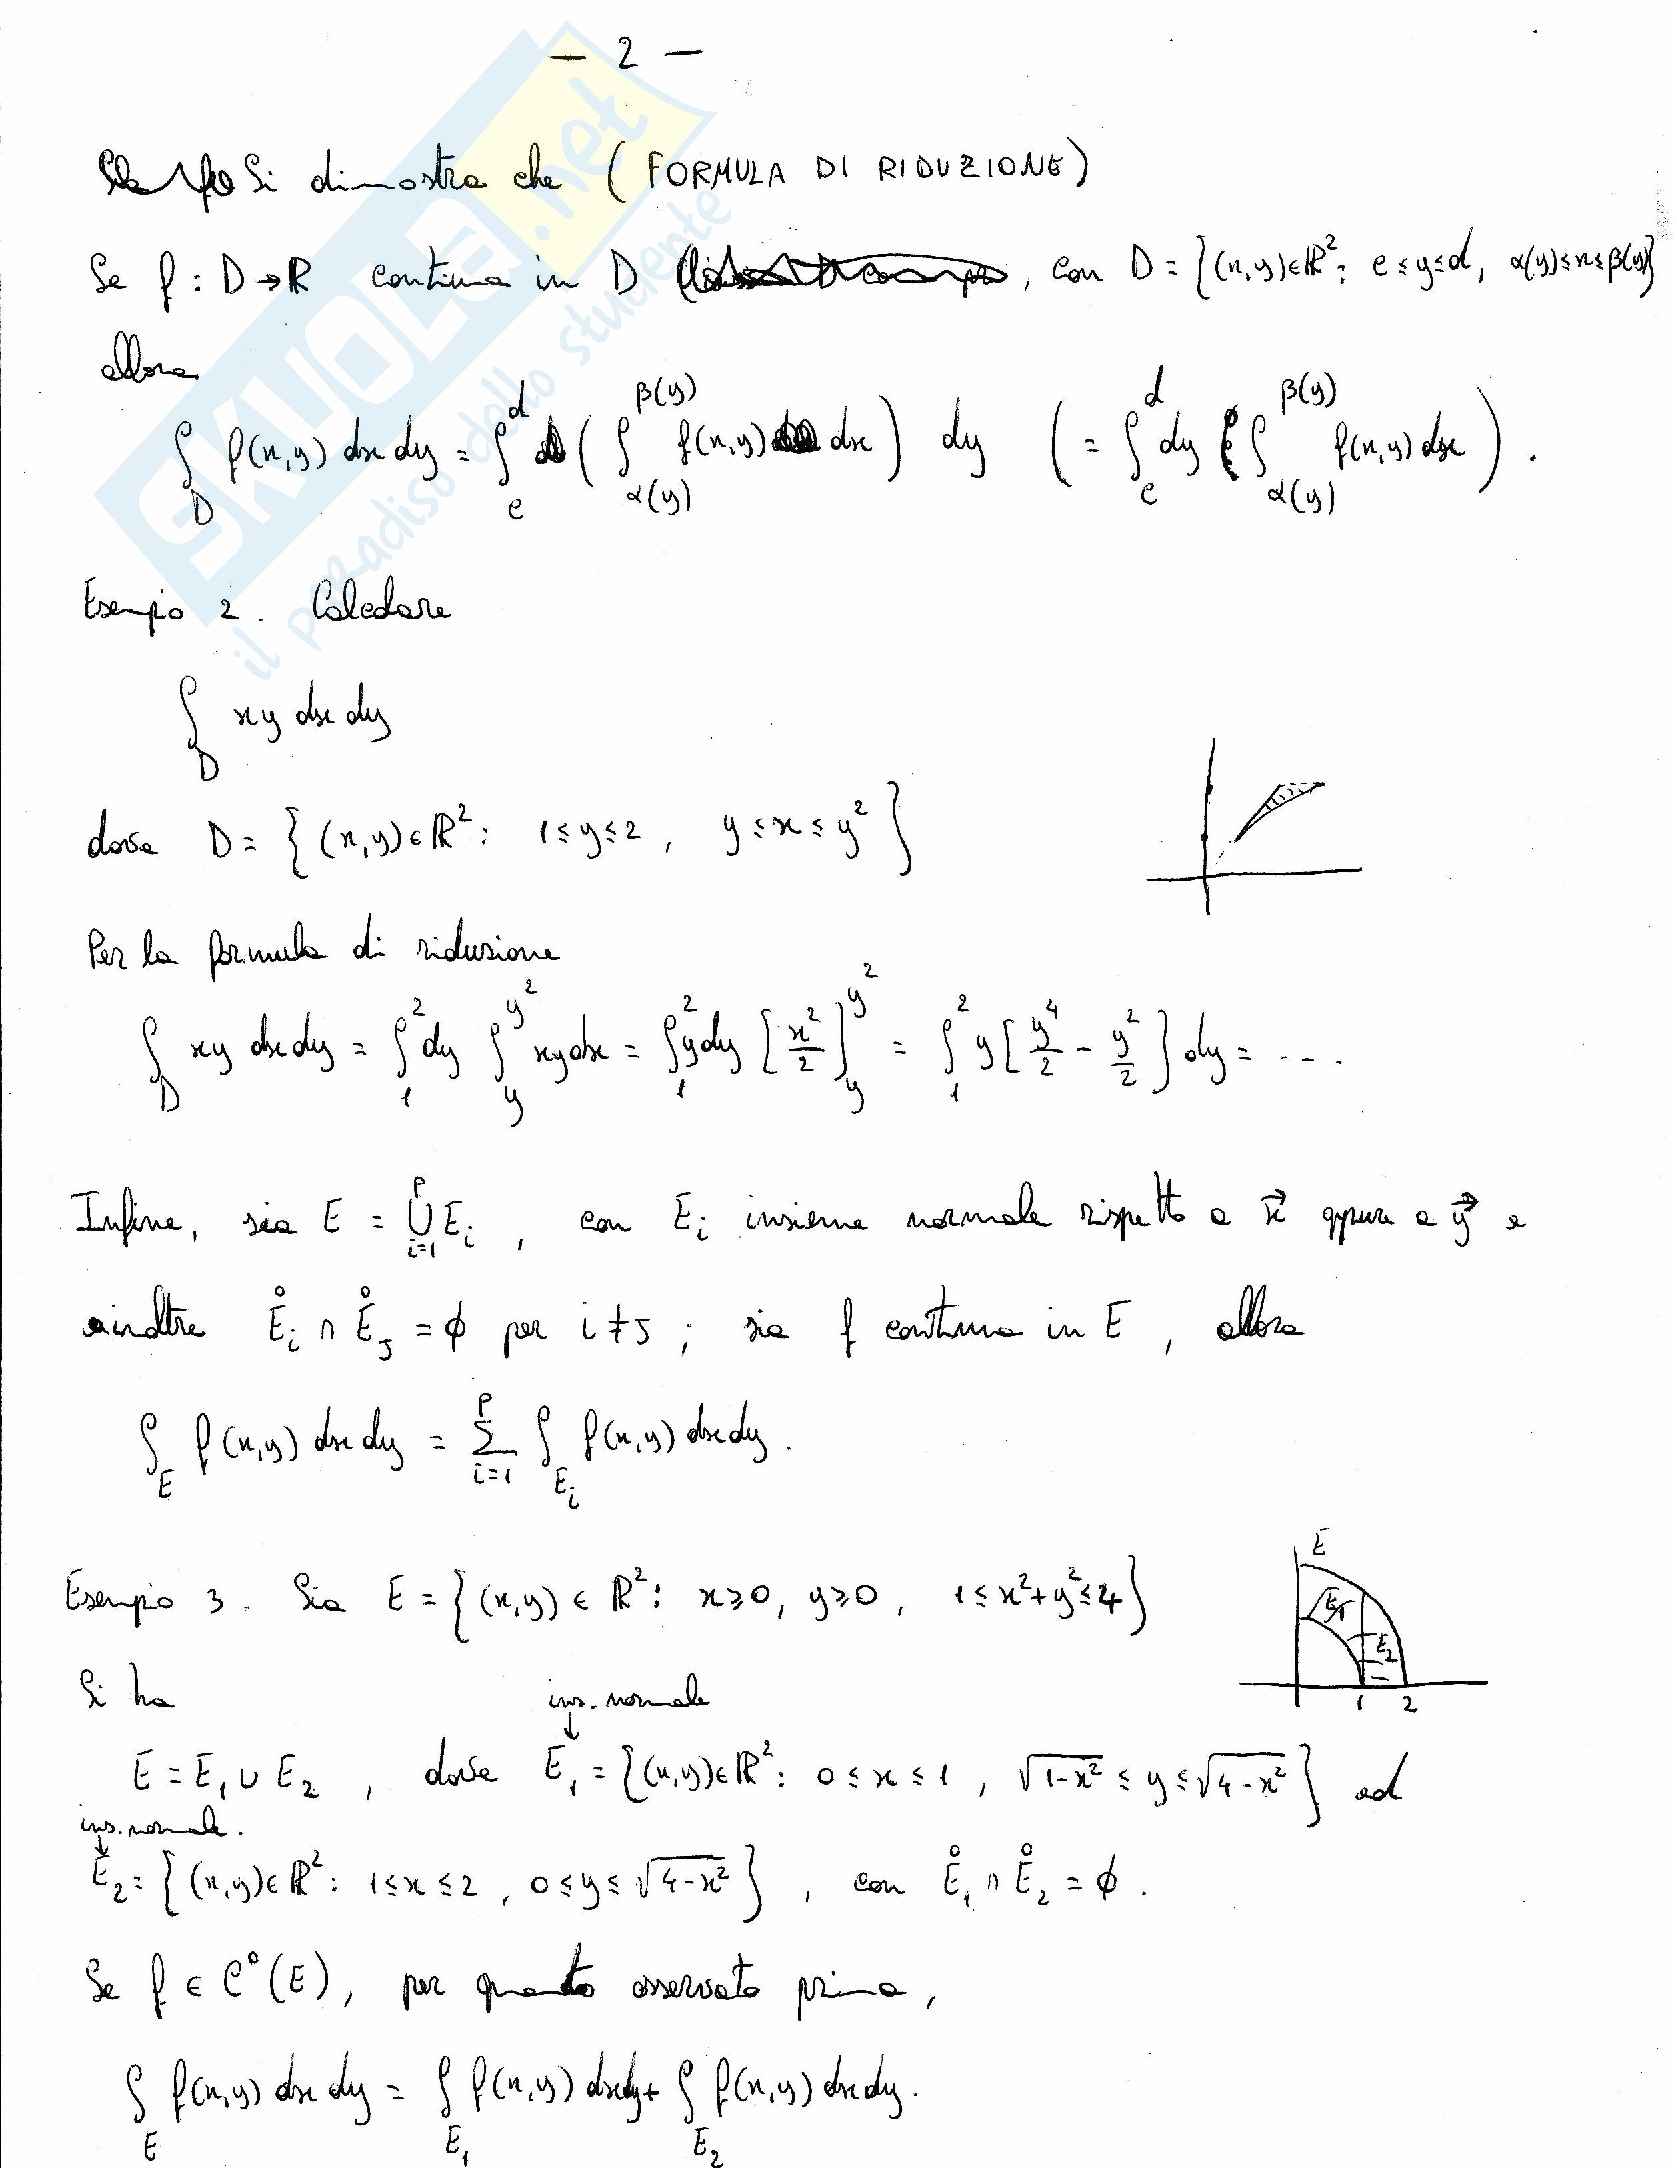 — 2 —
Si dimostra che ( FORMULA DI RIDUZIONE )
Se f : D → ℝ continua in D , con D = {(x,y) ∈ ℝ² : c ≤ y ≤ d, α(y) ≤ x ≤ β(y)}
allora
∫_D f(x,y) dx dy = ∫_c^d ( ∫_{α(y)}^{β(y)} f(x,y) dx ) dy ( = ∫_c^d dy ∫_{α(y)}^{β(y)} f(x,y) dx ) .
Esempio 2 . Calcolare
∫_D xy dx dy
dove D = { (x,y) ∈ ℝ² : 1 ≤ y ≤ 2 , y ≤ x ≤ y² }
Per la formula di riduzione
∫_D xy dx dy = ∫_1^2 dy ∫_y^{y²} xy dx = ∫_1^2 y dy [x²/2]_y^{y²} = ∫_1^2 y [y⁴/2 − y²/2] dy = - - - .
Infine, sia E = ⋃_{i=1}^p E_i , con E_i insieme normale rispetto a x⃗ oppure a y⃗ e
inoltre E̊_i ∩ E̊_j = ϕ per i ≠ j ; sia f continua in E , allora
∫_E f(x,y) dx dy = Σ_{i=1}^p ∫_{E_i} f(x,y) dx dy .
Esempio 3 . Sia E = {(x,y) ∈ ℝ² : x ≥ 0, y ≥ 0 , 1 ≤ x² + y² ≤ 4}
E
E₁
E₂
1 2
Si ha
ins. normale
↓
E = E₁ ∪ E₂ , dove E₁ = {(x,y) ∈ ℝ² : 0 ≤ x ≤ 1 , √(1-x²) ≤ y ≤ √(4-x²) } ed
ins. normale.
↓
E₂ = {(x,y) ∈ ℝ² : 1 ≤ x ≤ 2 , 0 ≤ y ≤ √(4-x²) } , con E̊₁ ∩ E̊₂ = ϕ .
Se f ∈ C°(E) , per quanto osservato prima ,
∫_E f(x,y) dx dy = ∫_{E₁} f(x,y) dx dy + ∫_{E₂} f(x,y) dx dy .
SKUOLA.net
il paradiso dello studente